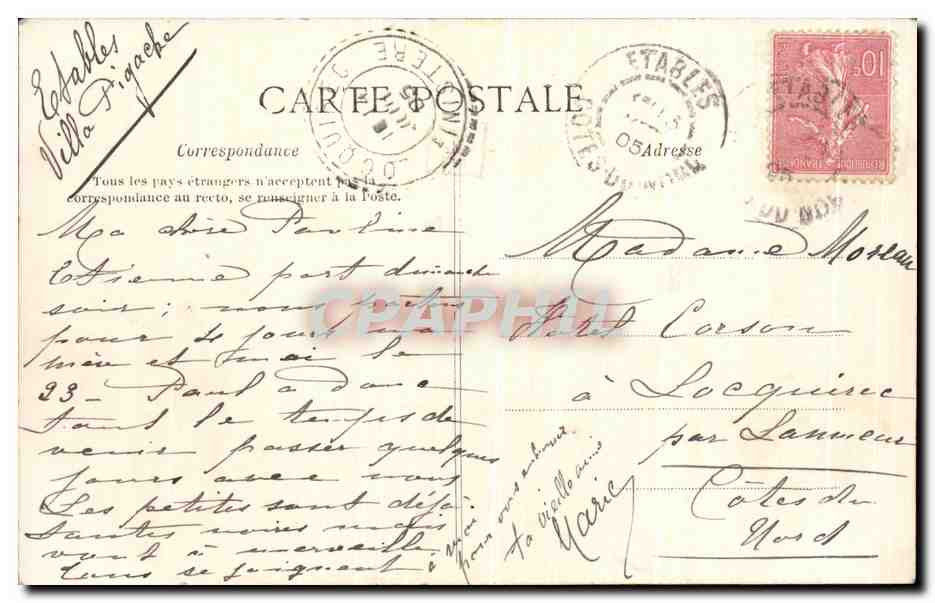 Etables
Villa Pigache
CARTE POSTALE
Correspondance
Adresse
Tous les pays étrangers n'acceptent pas la
correspondance au recto, se renseigner à la Poste.
Ma chère Pauline
Etienne part dimanche
soir; nous partons
pour 4 jours ma
mère et moi le
23 - Paul a donc
tout le temps de
venir passer quelques
jours avec nous
Les petites sont déjà
toutes noires mais
vont à merveille
tous se joignent à moi
pour vous embrasser
ta vieille amie
Marie
Madame Moreau
Hotel Corson
à Locquirec
par Lanmeur
Côtes du
Nord
ETABLES
COTES DU NORD
05
LOCQUIREC
FINISTERE
05
10c
REPUBLIQUE FRANÇAISE
ETABLES
DU NORD
CPAPHIL